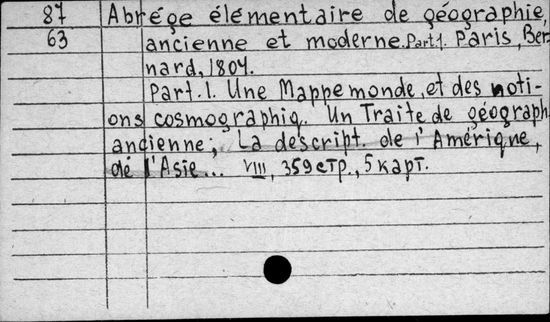 87 Abrége élémentaire de géographie,
63 ancienne et moderne. Part 1. Paris, Ber
nard, 1804.
Part. 1. Une Mappemonde, et des noti-
ons cosmographiq. Un Traite de géograph
ancienne; La descript. de l'Amérique,
de l'Asie... VIII, 359 стр., 5 карт.